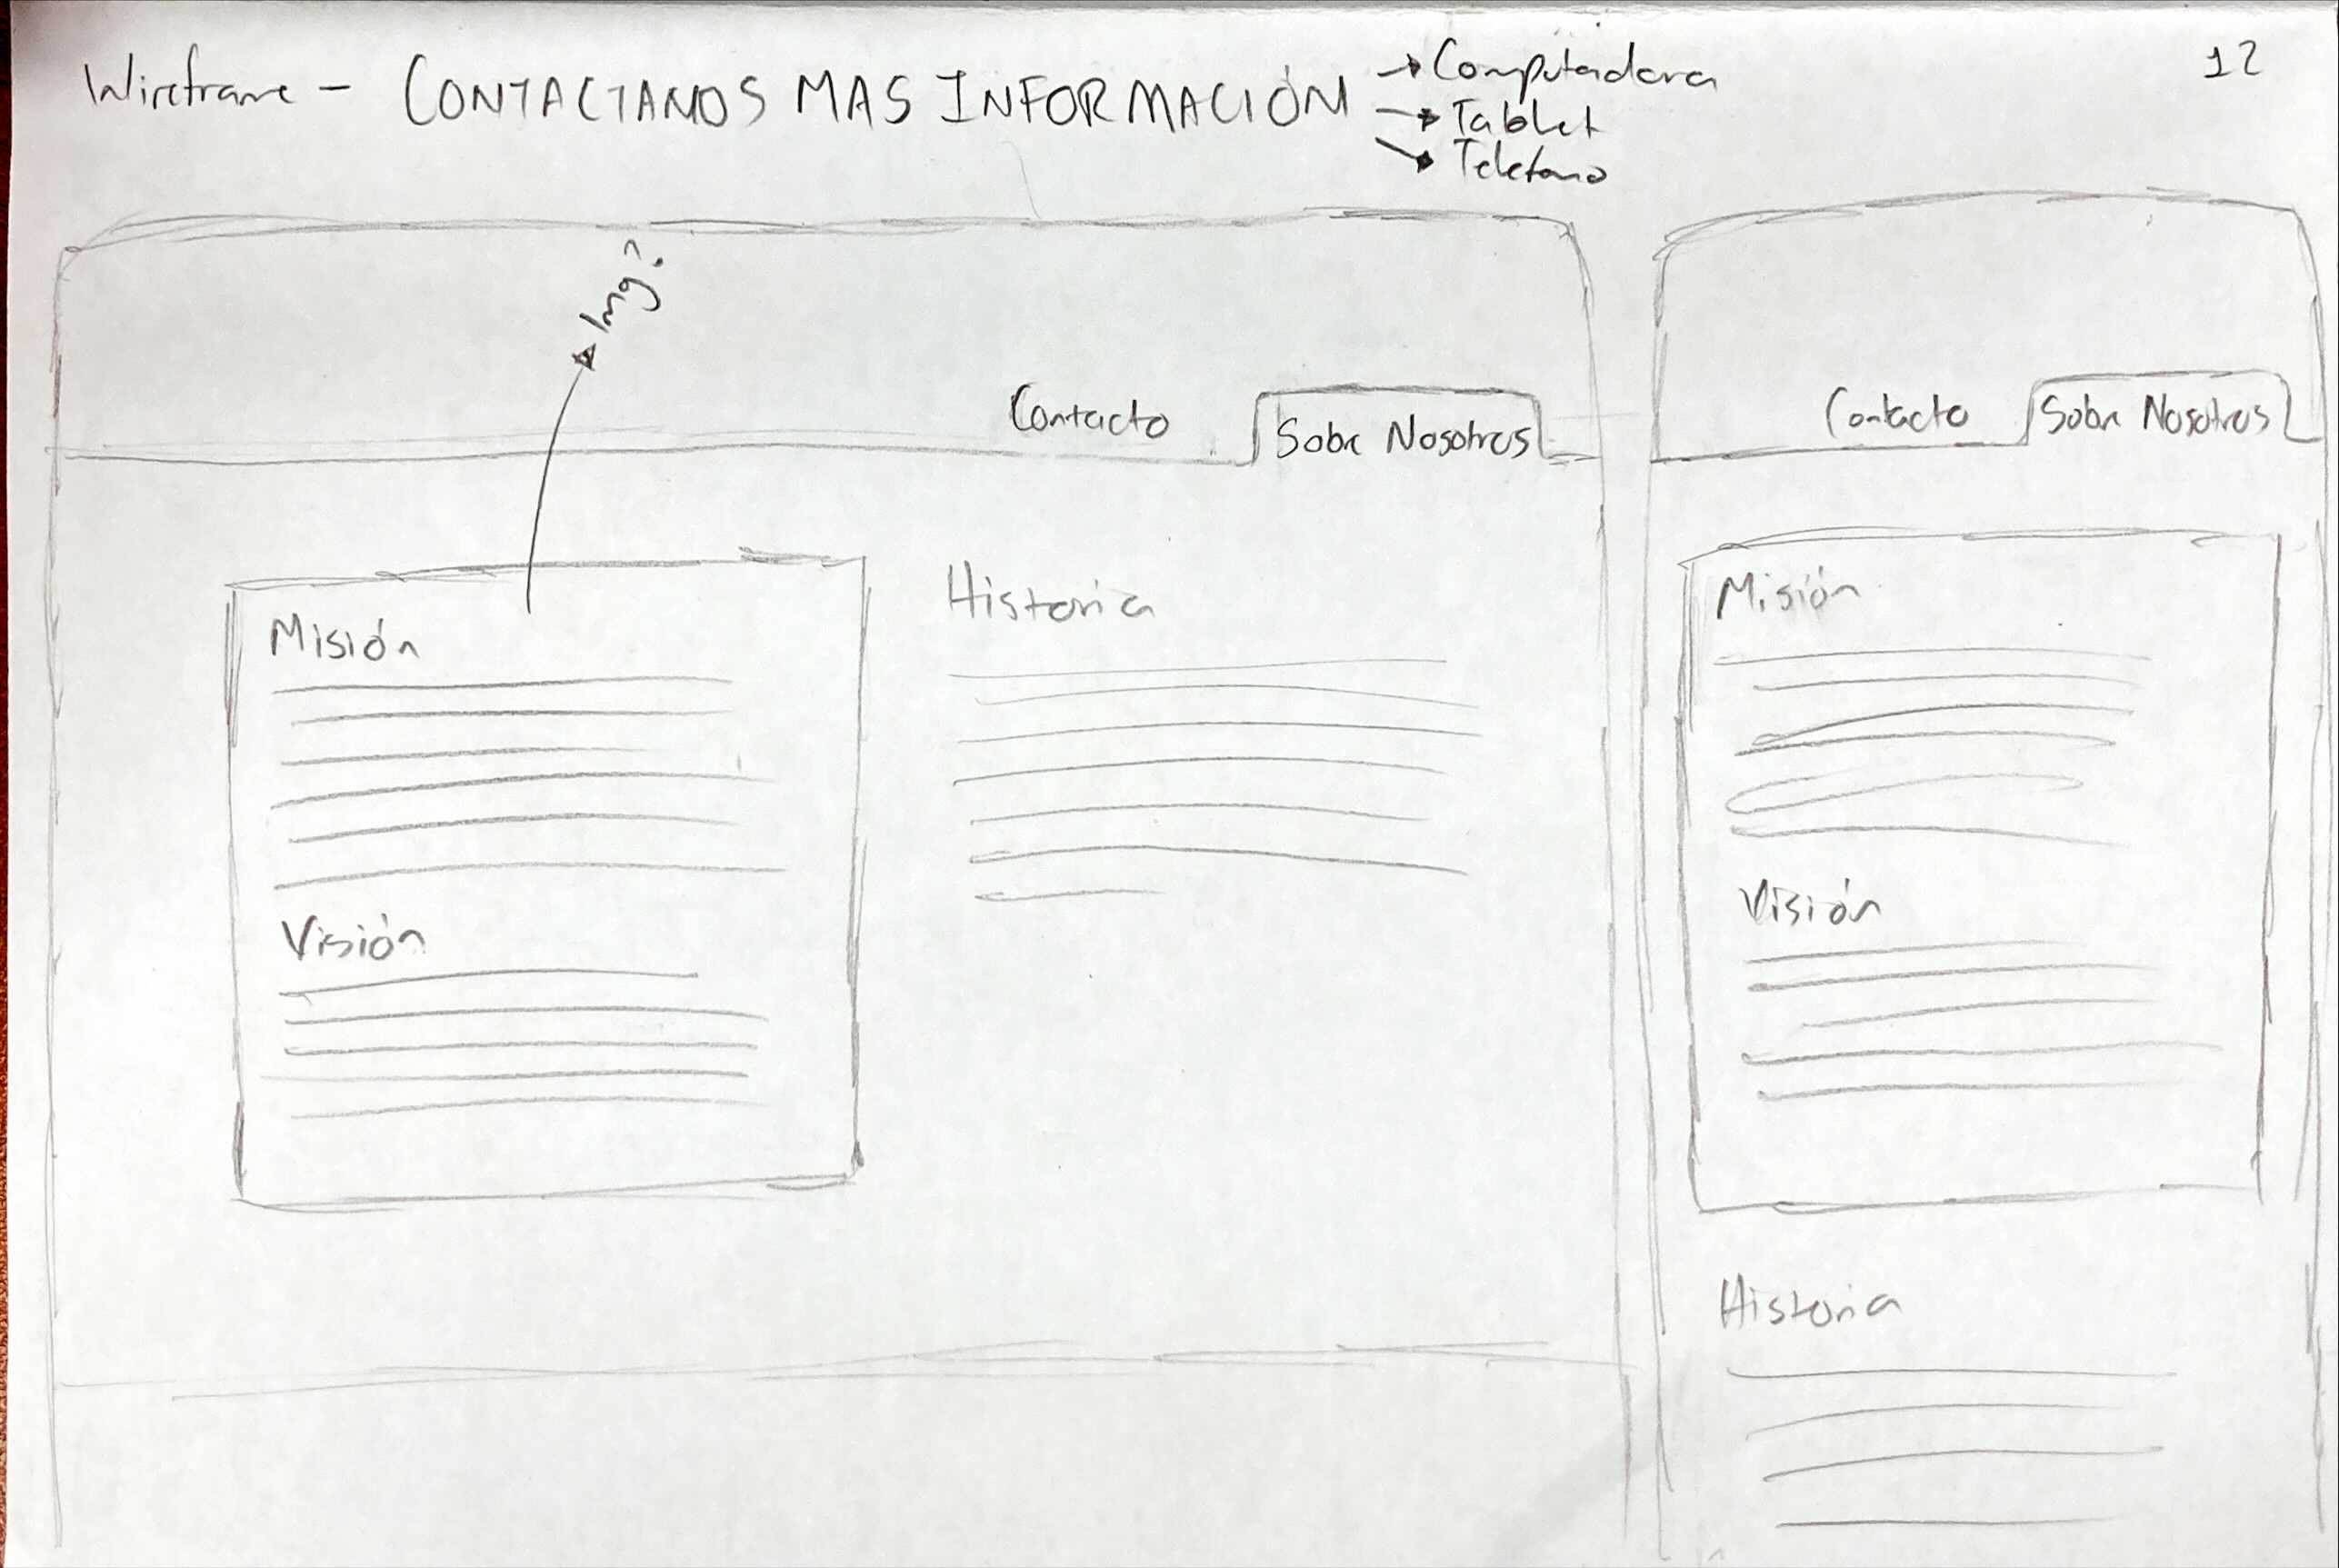 Wireframe - CONTACTANOS MAS INFORMACIÓN
→ Computadora
→ Tablet
→ Telefono
12
Img?
Contacto
Sobre Nosotros
Misión
Visión
Historia
Contacto
Sobre Nosotros
Misión
Visión
Historia